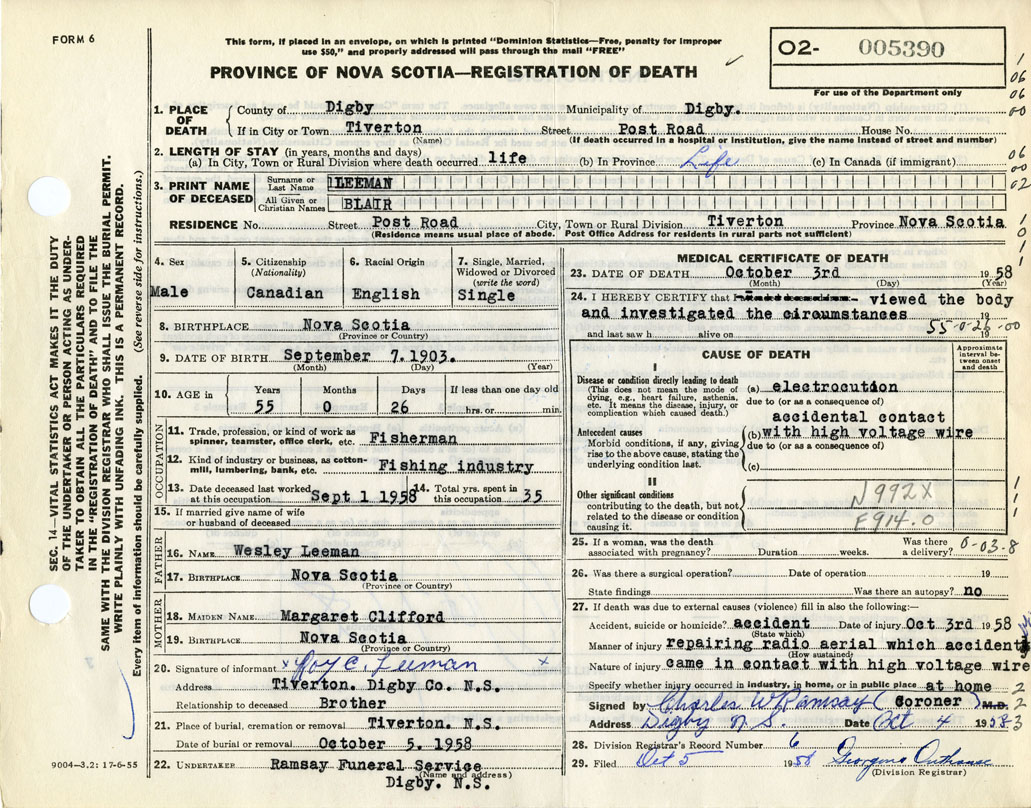 FORM 6
This form, if placed in an envelope, on which is printed "Dominion Statistics—Free, penalty for improper
use $50," and properly addressed will pass through the mail "FREE"
PROVINCE OF NOVA SCOTIA—REGISTRATION OF DEATH
O2- 005390
For use of the Department only
SEC. 14—VITAL STATISTICS ACT MAKES IT THE DUTY
OF THE UNDERTAKER OR PERSON ACTING AS UNDER-
TAKER TO OBTAIN ALL THE PARTICULARS REQUIRED
IN THE "REGISTRATION OF DEATH" AND TO FILE THE
SAME WITH THE DIVISION REGISTRAR WHO SHALL ISSUE THE BURIAL PERMIT.
WRITE PLAINLY WITH UNFADING INK. THIS IS A PERMANENT RECORD.
Every item of information should be carefully supplied. (See reverse side for instructions.)
1. PLACE OF DEATH
County of Digby Municipality of Digby.
If in City or Town Tiverton Street Post Road House No.
(Name) (If death occurred in a hospital or institution, give the name instead of street and number)
2. LENGTH OF STAY (in years, months and days)
(a) In City, Town or Rural Division where death occurred life (b) In Province Life (c) In Canada (if immigrant)
3. PRINT NAME OF DECEASED
Surname or Last Name LEEMAN
All Given or Christian Names BLAIR
RESIDENCE No. Street Post Road City, Town or Rural Division Tiverton Province Nova Scotia
(Residence means usual place of abode. Post Office Address for residents in rural parts not sufficient)
4. Sex
Male
5. Citizenship
(Nationality)
Canadian
6. Racial Origin
English
7. Single, Married,
Widowed or Divorced
(write the word)
Single
8. BIRTHPLACE Nova Scotia
(Province or Country)
9. DATE OF BIRTH September 7. 1903.
(Month) (Day) (Year)
10. AGE in
Years Months Days If less than one day old
55 0 26 hrs. or min.
OCCUPATION
11. Trade, profession, or kind of work as
spinner, teamster, office clerk, etc. Fisherman
12. Kind of industry or business, as cotton-
mill, lumbering, bank, etc. Fishing industry
13. Date deceased last worked
at this occupation Sept 1 1958
14. Total yrs. spent in
this occupation 35
15. If married give name of wife
or husband of deceased
FATHER
16. NAME Wesley Leeman
17. BIRTHPLACE Nova Scotia
(Province or Country)
MOTHER
18. MAIDEN NAME Margaret Clifford
19. BIRTHPLACE Nova Scotia
(Province or Country)
20. Signature of informant x Roy C. Leeman x
Address Tiverton. Digby Co. N.S.
Relationship to deceased Brother
21. Place of burial, cremation or removal Tiverton. N.S.
Date of burial or removal October 5. 1958
22. UNDERTAKER Ramsay Funeral Service
(Name and address)
Digby. N.S.
9004—3.2: 17-6-55
MEDICAL CERTIFICATE OF DEATH
23. DATE OF DEATH October 3rd 1958
(Month) (Day) (Year)
24. I HEREBY CERTIFY that viewed the body
and investigated the circumstances 19
55-0-26-00
and last saw h alive on 19
CAUSE OF DEATH
Approximate
interval be-
tween onset
and death
I
Disease or condition directly leading to death
(This does not mean the mode of
dying, e.g., heart failure, asthenia,
etc. It means the disease, injury, or
complication which caused death.)
(a) electrocution
due to (or as a consequence of)
accidental contact
Antecedent causes
Morbid conditions, if any, giving
rise to the above cause, stating the
underlying condition last.
(b) with high voltage wire
due to (or as a consequence of)
(c)
II
Other significant conditions
contributing to the death, but not
related to the disease or condition
causing it.
N992X
E914.0
25. If a woman, was the death
associated with pregnancy? Duration weeks. Was there
a delivery? 0-03-8
26. Was there a surgical operation? Date of operation 19
State findings Was there an autopsy? no
27. If death was due to external causes (violence) fill in also the following:—
Accident, suicide or homicide? accident Date of injury Oct 3rd 1958
(State which)
Manner of injury repairing radio aerial which accident
(How sustained)
Nature of injury came in contact with high voltage wire
Specify whether injury occurred in industry, in home, or in public place at home
Signed by Charles W Ramsay (Coroner) M.D.
Address Digby N S. Date Oct 4 1958
28. Division Registrar's Record Number 6
29. Filed Oct 5 1958 Georgina Outhouse
(Division Registrar)